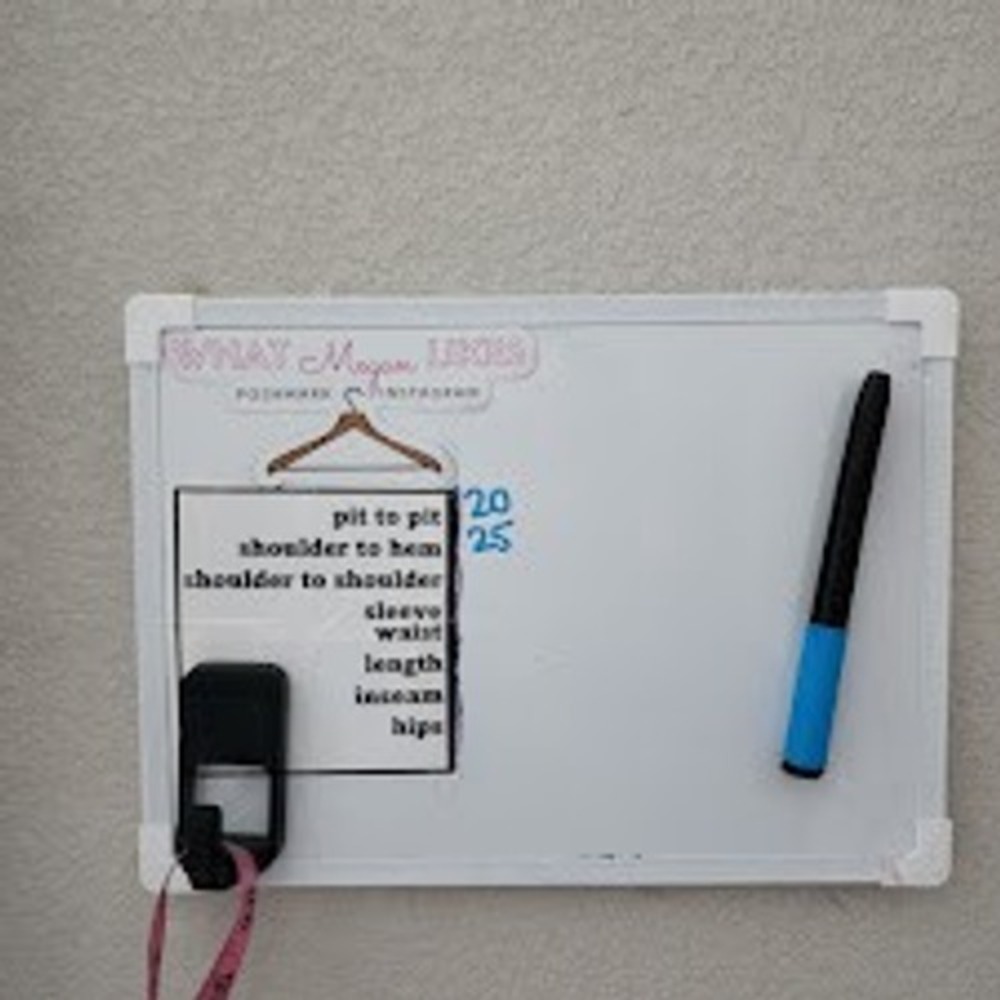 WHAT Megan LIKES
POSHMARK INSTAGRAM
pit to pit 20
shoulder to hem 25
shoulder to shoulder
sleeve
waist
length
inseam
hips